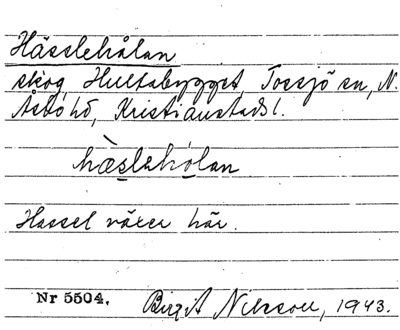 Hässlehålan
skog, Hultabygget, Tossjö sn, N.
Åsbo hd, Kristianstads l.
hæ̀slehólan
Hassel växer här.
Nr 5504. Birgit Nilsson, 1943.